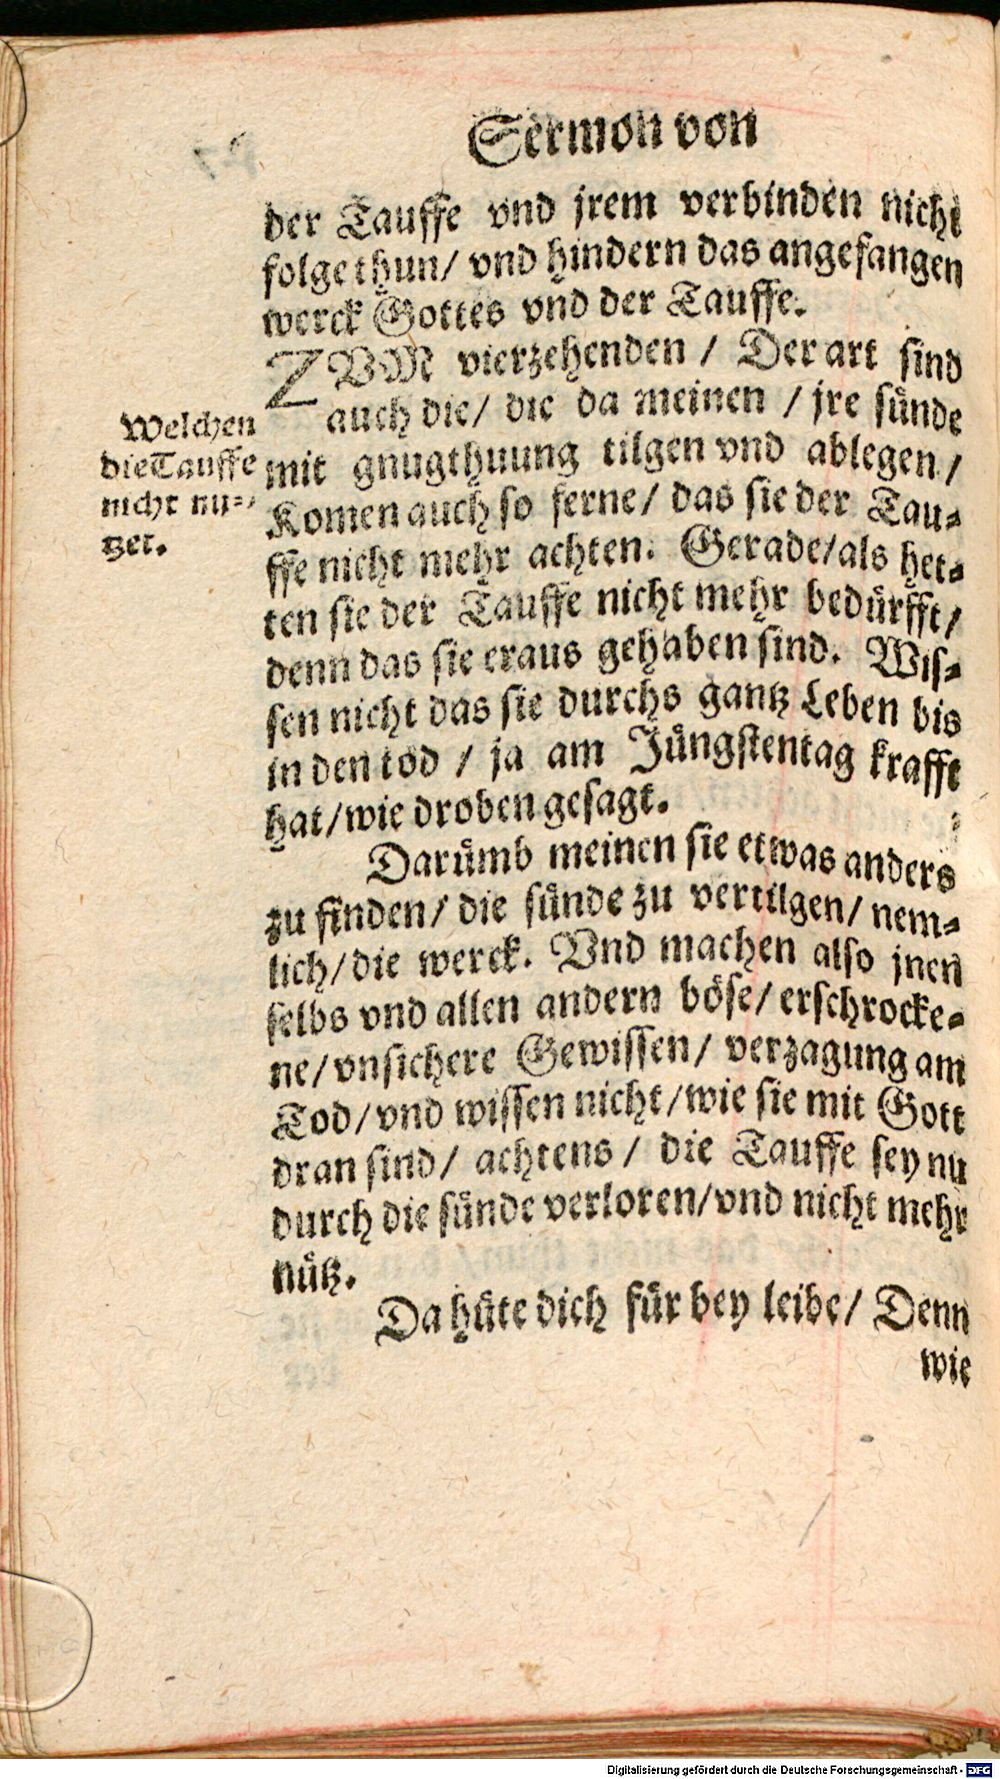 Sermon von
der Tauffe vnd jrem verbinden nicht
folge thun/ vnd hindern das angefangen
werck Gottes vnd der Tauffe.
ZVM vierzehenden / Der art sind
auch die/ die da meinen / jre sünde
mit gnugthuung tilgen vnd ablegen/
Komen auch so ferne/ das sie der Tau-
ffe nicht mehr achten. Gerade/als het-
ten sie der Tauffe nicht mehr bedürfft/
denn das sie eraus gehaben sind. Wis-
sen nicht das sie durchs gantz Leben bis
in den tod / ja am Jüngstentag krafft
hat/wie droben gesagt.
Darümb meinen sie etwas anders
zu finden/ die sünde zu vertilgen/ nem-
lich/die werck. Vnd machen also jnen
selbs vnd allen andern böse/ erschrocke-
ne/vnsichere Gewissen/ verzagung am
Tod/vnd wissen nicht/wie sie mit Gott
dran sind/ achtens / die Tauffe sey nu
durch die sünde verloren/vnd nicht mehr
nütz.
Da hüte dich für bey leibe/ Denn
wie
Welchen
die Tauffe
nicht nu-
tzet.
Digitalisierung gefördert durch die Deutsche Forschungsgemeinschaft - DFG